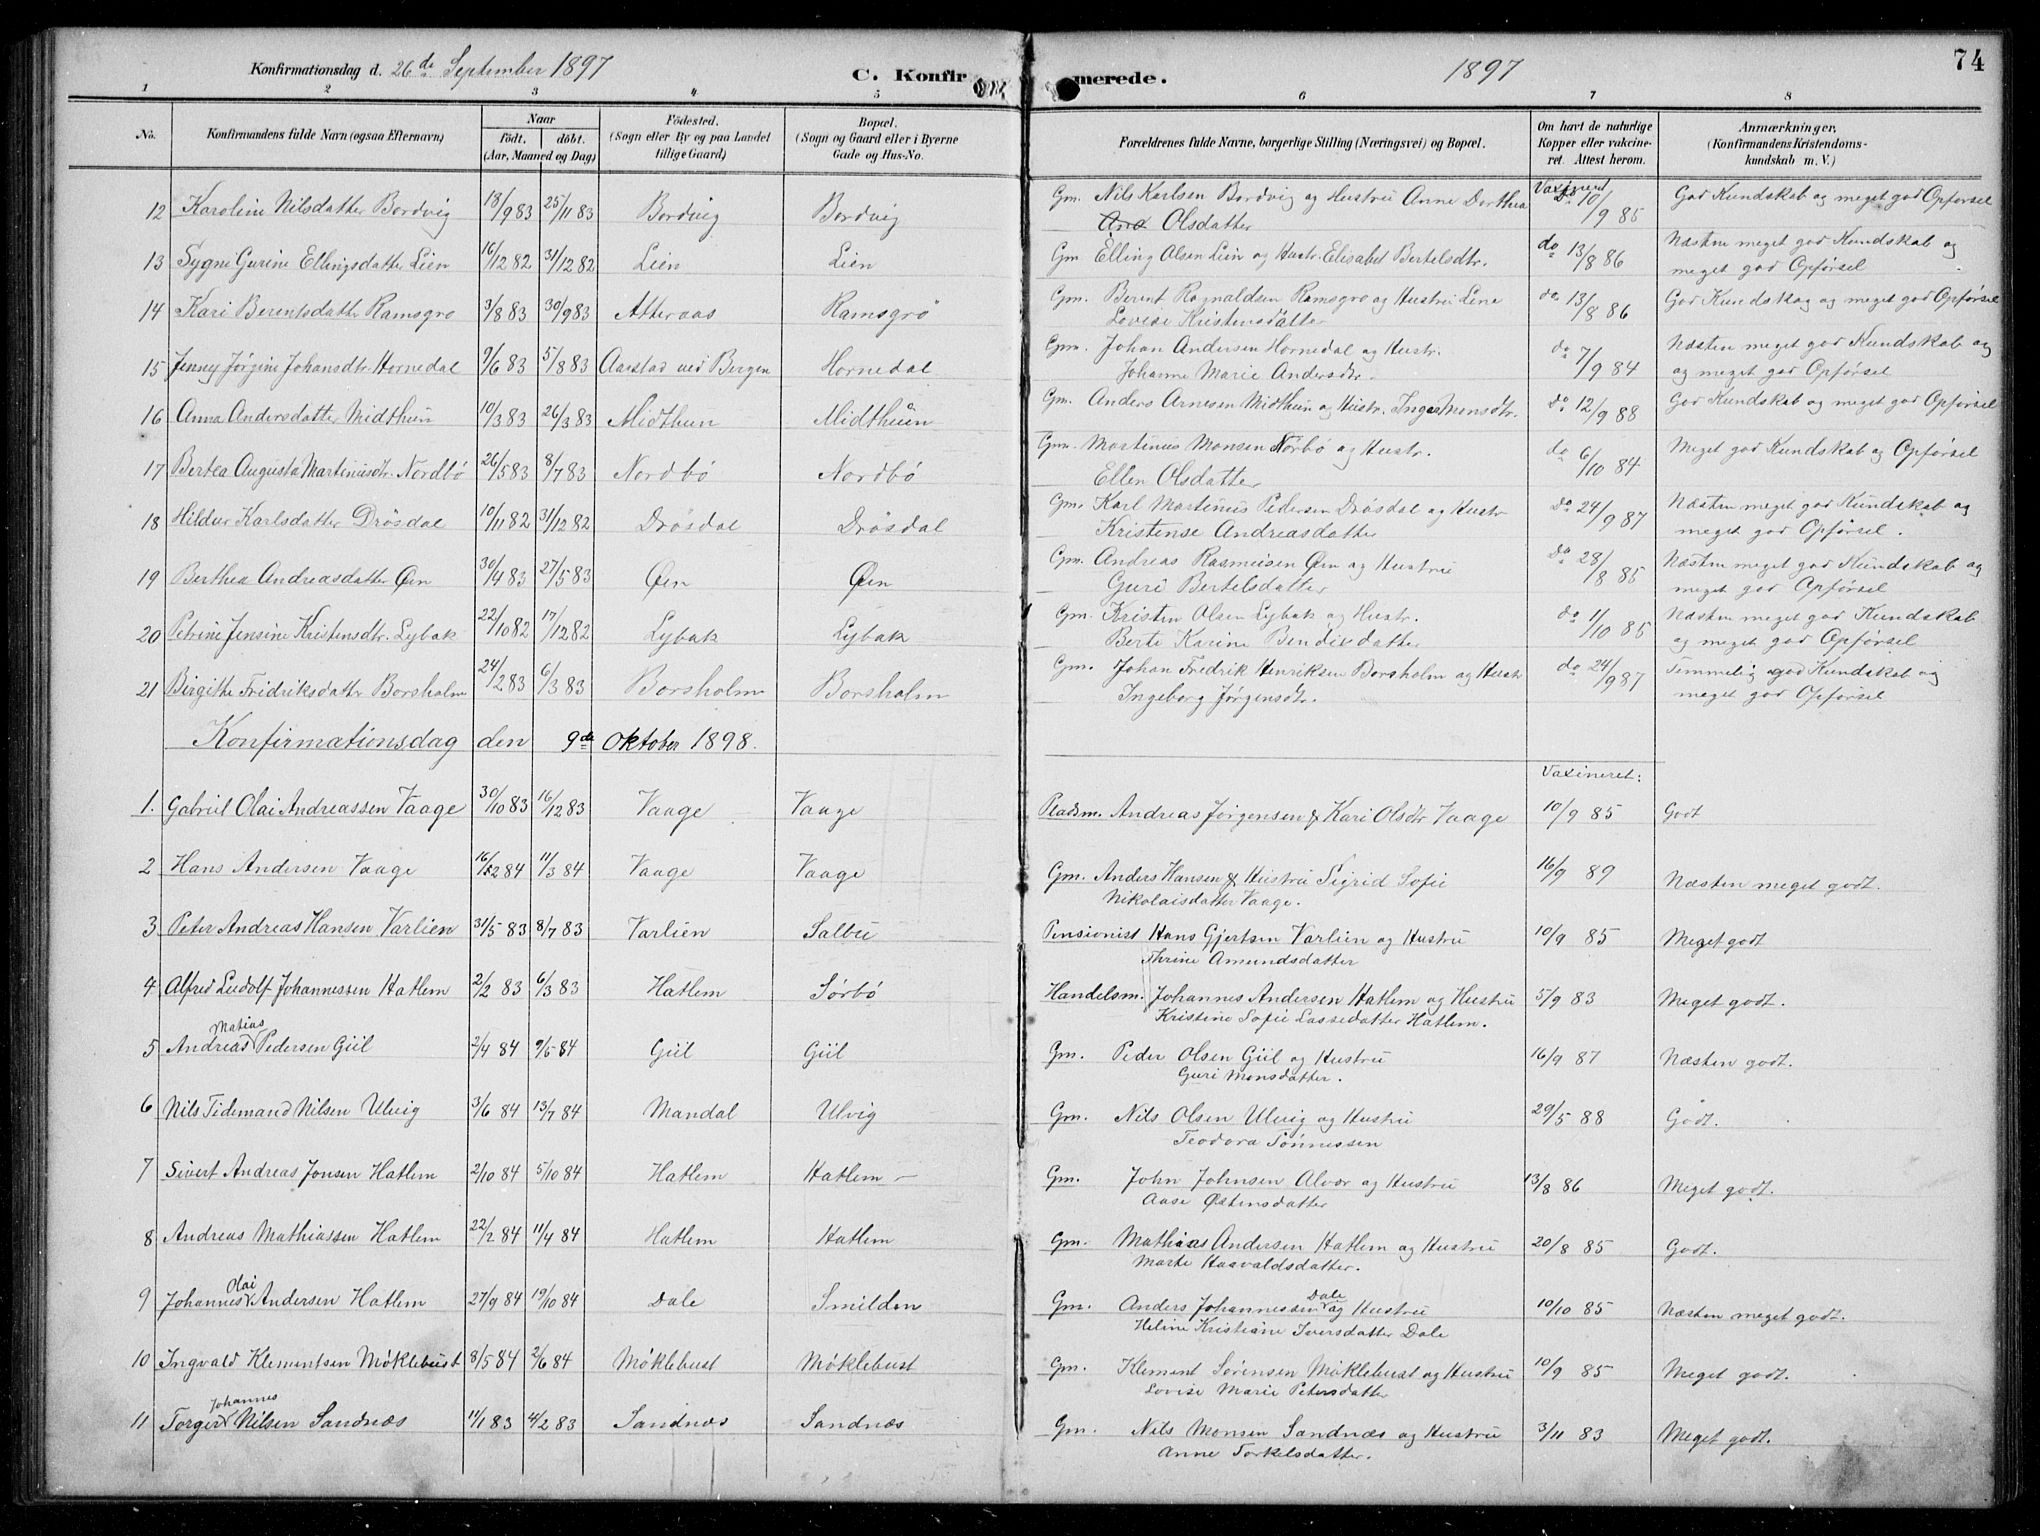 Konfirmationsdag d. 26de September 1897
C. Konfir
merede.
1897
74
1 2 3 4 5 6 7 8
No. Konfirmandens fulde Navn (ogsaa Efternavn)
Naar
födt. döbt.
(Aar, Maaned og Dag)
Födested.
(Sogn eller By og paa Landet
tillige Gaard)
Bopæl.
(Sogn og Gaard eller i Byerne
Gade og Hus-No.
Forældrenes fulde Navne, borgerlige Stilling (Næringsvei) og Bopæl.
Om havt de naturlige
Kopper eller vakcine-
ret. Attest herom.
Anmærkninger,
(Konfirmandens Kristendoms-
kundskab m. V.)
Vaxineret
12 Karoline Nilsdatter Bordvig 18/9 83 25/11 83 Bordvig Bordvig Gm. Nils Karlsen Bordvig og Hustru Anne Dorthea Do 10/9 85 God Kundskab og meget god Opførsel
Olsdatter
13 Sygni Gurine Ellingsdatter Lien 16/12 82 31/12 82 Lien Lien Gm Elling Olsen Lien og Hustr. Elisabet Bertelsdtr. do 13/8 86 Næsten meget god Kundskab og
meget god Opførsel
14 Kari Berentsdatter Ramsgro 3/8 83 30/9 83 Atteraas Ramsgrö Gm. Berent Ragnaldsen Ramsgro og Hustru Lene do 13/8 86 God Kundskag og meget god Opførsel
Lovise Kristensdatter
15 Jenny Jørgine Johansdtr. Hornedal 9/6 83 5/8 83 Aarstad ved Bergen Hornedal Gm. Johan Andersen Hornedal og Hustr. do 7/9 84 Næsten meget god Kundskab og
Johanne Marie Andersdtr. og meget god Opførsel
16 Anna Andersdatter Midthun 10/3 83 26/3 83 Midthun Midthun Gm. Anders Arnesen Midthun og Hustr. Inger Monsdtr. Do 12/9 88 God Kundskab og meget god Opførsel
17 Bertea Augusta Martinusdtr. Nordbö 26/5 83 8/7 83 Nordbö Nordbö Gm. Martinus Monsen Nörbö og Hustr. do 6/10 84 Meget god Kundskab og Opførsel
Ellen Olsdatter
18 Hildur Karlsdatter Drösdal 10/11 82 31/12 82 Drösdal Drösdal Gm. Karl Martinus Pedersen Drösdal og Hustr Do 24/9 87 Næsten meget god Kundskab og
Kristense Andreasdatter meget god Opførsel.
19 Berthea Andreasdatter Øen 30/4 83 27/5 83 Øen Øen Gm. Andreas Rasmusen Øen og Hustru Do 28/8 85 Næsten meget god Kundskab og
Guri Bertelsdatter meget god Opførsel
20 Petrine Jensine Kristensdtr. Lybak 22/10 82 17/12 82 Lybak Lybak Gm. Kristen Olsen Lybak og Hustr. do 1/10 85 Næsten meget god Kundskab
Berte Karine Bendixdatter og meget god Opførsel
21 Birgithe Fridriksdatter Borsholm 24/2 83 6/3 83 Borsholm Borsholm Gm. Johan Fredrik Henriksen Borsholm og Hustr do 24/9 87 Temmelig god Kundskab og
Ingeborg Jørgensdtr. meget god Opførsel
Konfirmationsdag den 9de Oktober 1898.
Vaxineret:
1. Gabriel Olai Andreassen Vaage 30/10 83 16/12 83 Vaage Vaage Pladsm. Andreas Jørgensen & Kari Olsdtr Vaage 10/9 85 Godt
2 Hans Andersen Vaage 16/2 84 11/3 84 Vaage Vaage Gm. Anders Hansen & Hustru Sigrid Sofie 16/9 89 Næsten meget godt.
Nikolaisdatter Vaage.
3 Peter Andreas Hansen Varlien 31/5 83 8/7 83 Varlien Salbu Pensionist Hans Gjertsen Varlien og Hustru 10/9 85 Meget godt
Thrine Amundsdatter
4 Alfred Ludolf Johannessen Hatlem 2/2 83 6/3 83 Hatlem Sørbö Handelsm. Johannes Andersen Hatlem og Hustru 5/9 83 Meget godt.
Kristine Sofie Lassedatter Hatlem.
Matias
5 Andreas Pedersen Giil 2/4 84 9/5 84 Giil Giil Gm. Peder Olsen Giil og Hustru 16/9 87 Næsten godt.
Guri Monsdatter.
6 Nils Tidemand Nilsen Ulvig 3/6 84 13/7 84 Mandal Ulvig Gm. Nils Olsen Ulvig og Hustru 29/5 88 Godt.
Teodora Tönnessen
7 Sivert Andreas Jonsen Hatlem 2/10 84 5/10 84 Hatlem Hatlem - Gm. John Johnsen Alvor og Hustru 13/8 86 Meget godt.
Aase Østensdatter
8 Andreas Mathiassen Hatlem 22/2 84 11/4 84 Hatlem Hatlem Gm. Mathias Andersen Hatlem og Hustru 20/8 85 Godt.
Marte Haavaldsdatter.
Olai
9 Johannes Andersen Hatlem 27/9 84 19/10 84 Dale Smilden Gm. Anders Johannessen Dale og Hustru 10/10 85 Næsten meget godt.
Heline Kristiane Iversdatter Dale
10 Ingvald Klementsen Møklebust 8/5 84 2/6 84 Møklebust Møklebust Gm. Klement Sørensen Møklebust og Hustru 10/9 85 Meget godt.
Lovise Marie Petersdatter
Johannes
11 Torger Nilsen Sandnæs 11/1 83 4/2 83 Sandnæs Sandnæs Gm. Nils Monsen Sandnæs og Hustru 3/11 83 Meget godt.
Anne Torkelsdatter.